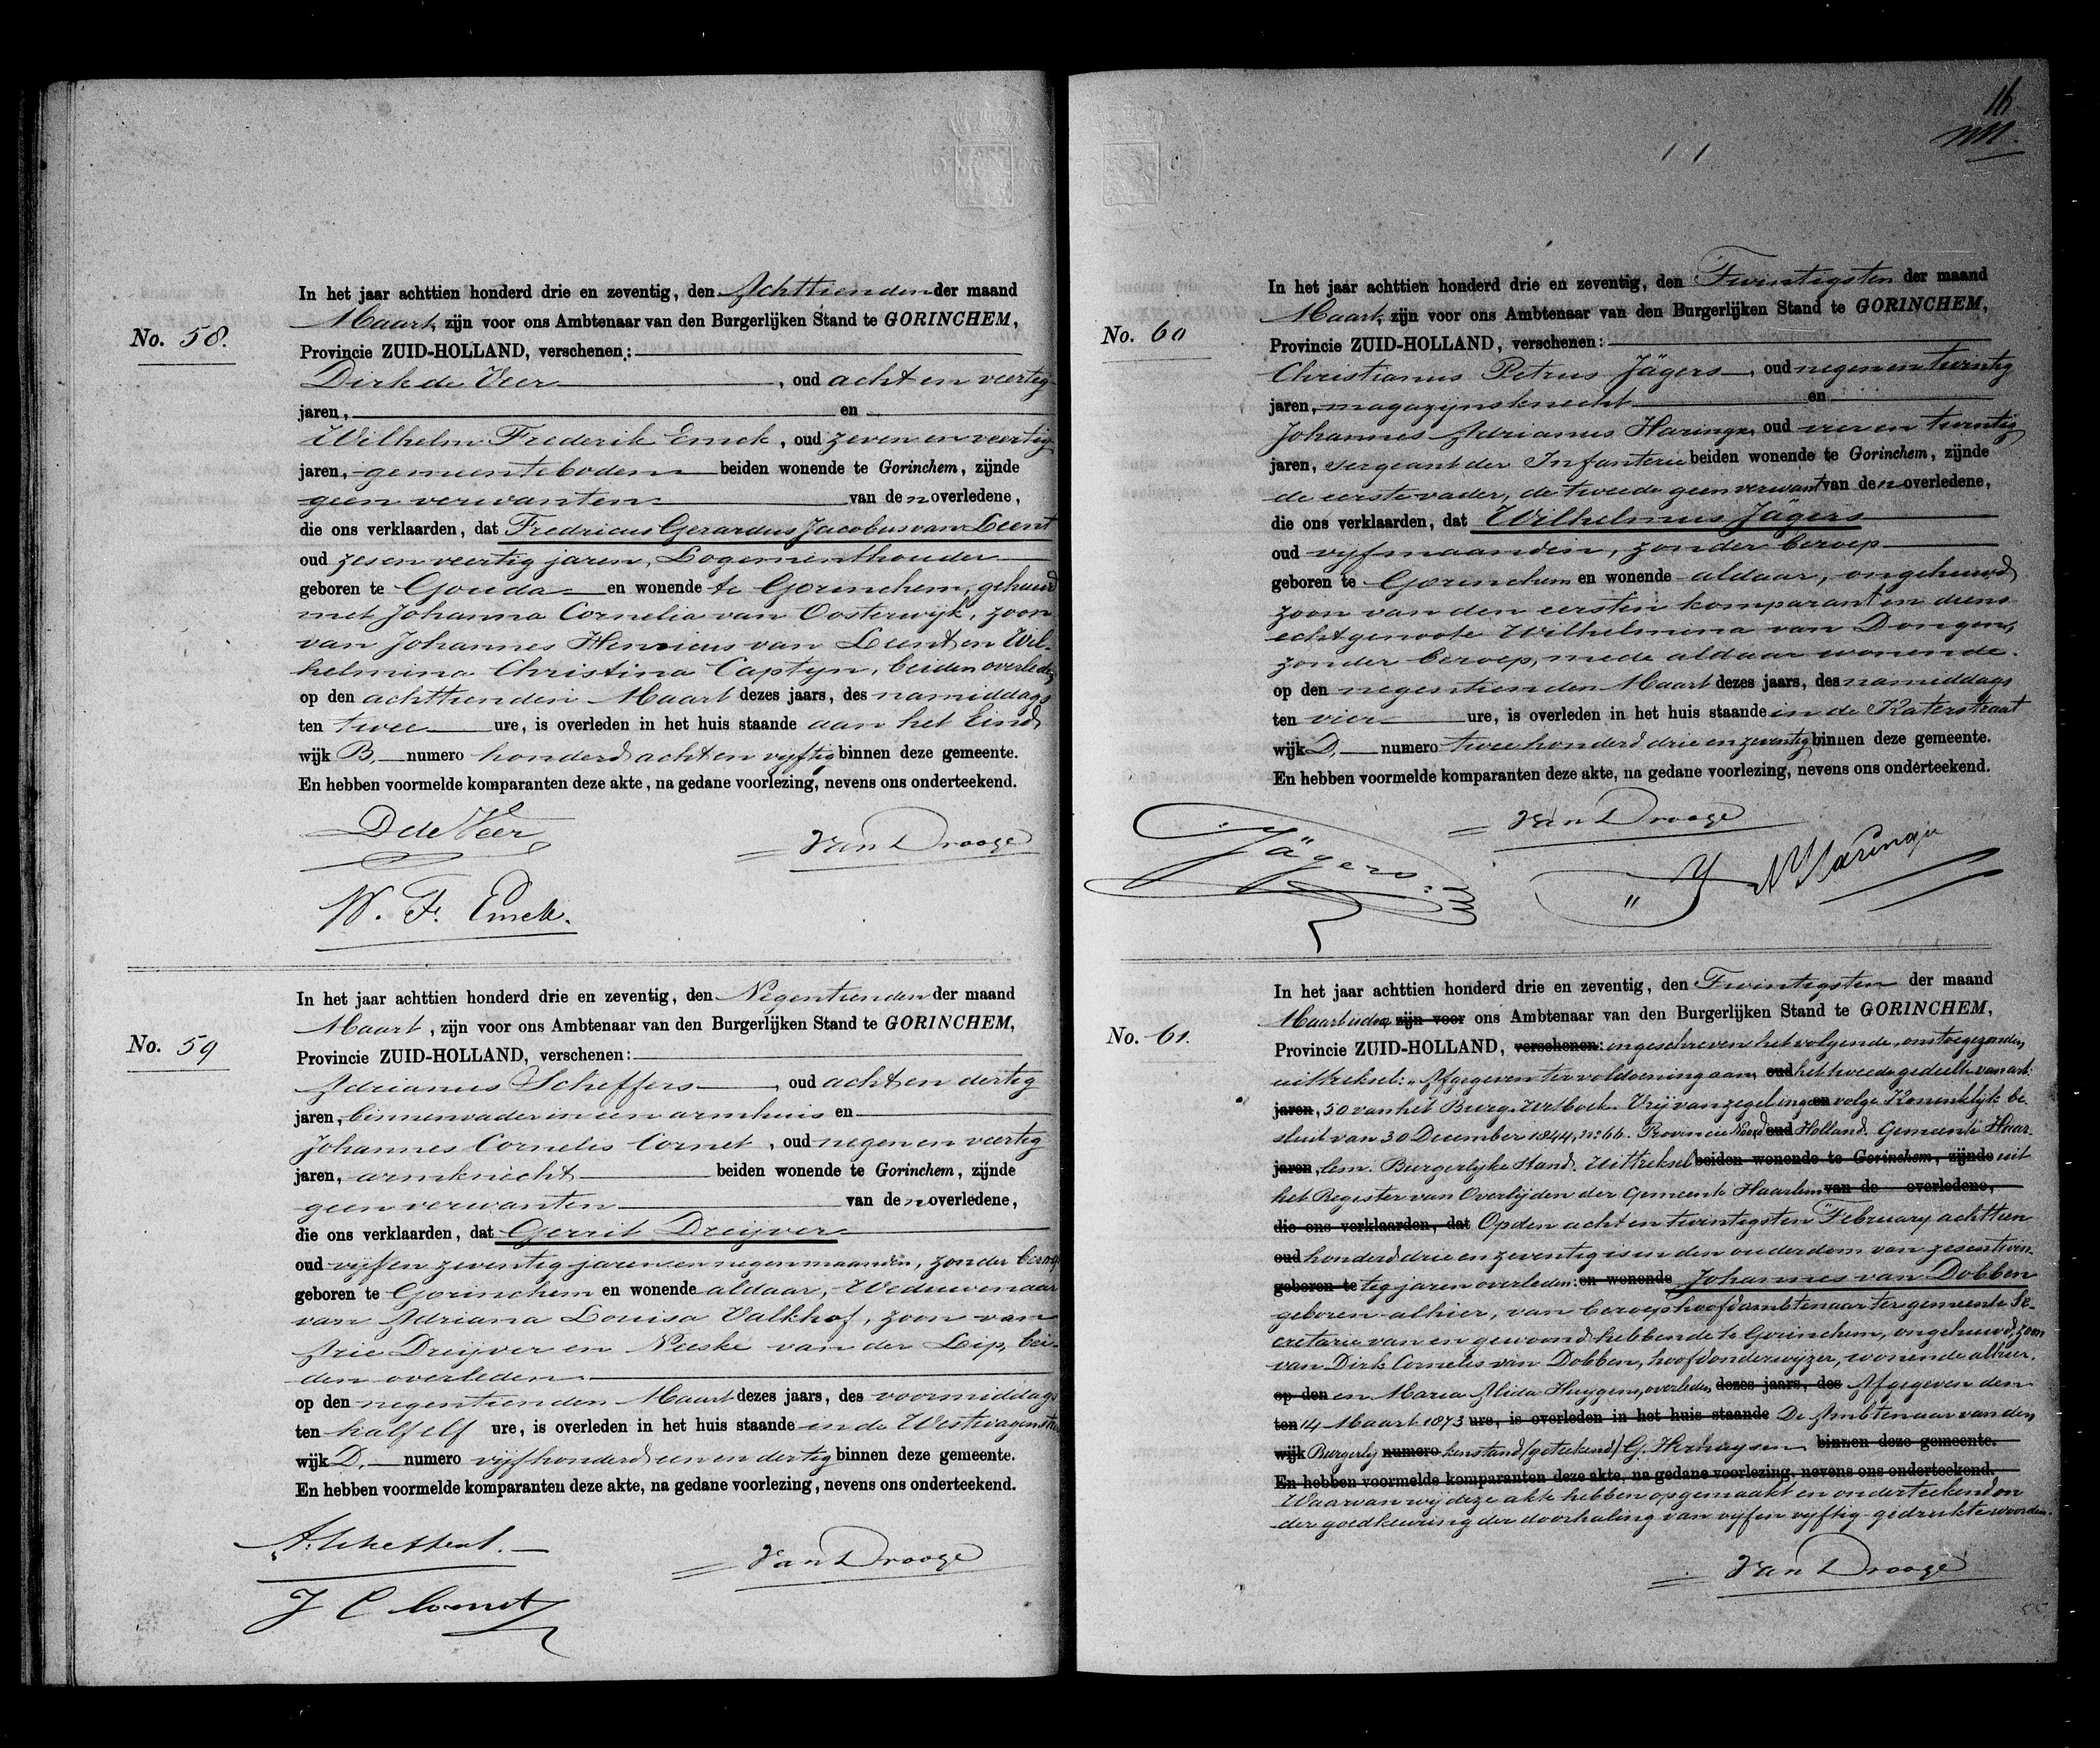 No. 58.
In het jaar achttien honderd drie en zeventig, den Achttienden der maand
Maart, zijn voor ons Ambtenaar van den Burgerlijken Stand te GORINCHEM,
Provincie ZUID-HOLLAND, verschenen:
Dirk de Veer, oud acht en veertig
jaren, en
Wilhelm Frederik Emck, oud zeven en veertig
jaren, gemeenteboden beiden wonende te Gorinchem, zijnde
geen verwanten van den overledene,
die ons verklaarden, dat Fredricus Gerardus Jacobus van Leent
oud zes en veertig jaren, Logementhouder
geboren te Gouda en wonende te Gorinchem, gehuwd
met Johanna Cornelia van Oosterwijk, zoon
van Johannes Henricus van Leent en Wil-
helmina Christina Captyn, beiden overleden
op den achttienden Maart dezes jaars, des namiddags
ten twee ure, is overleden in het huis staande aan het Eind
wijk B. numero honderd acht en vijftig binnen deze gemeente.
En hebben voormelde komparanten deze akte, na gedane voorlezing, nevens ons onderteekend.
D de Veer
Van Drooge
W. F. Emck.
No. 59
In het jaar achttien honderd drie en zeventig, den Negentienden der maand
Maart, zijn voor ons Ambtenaar van den Burgerlijken Stand te GORINCHEM,
Provincie ZUID-HOLLAND, verschenen:
Adrianus Scheffers, oud acht en dertig
jaren, binnenvader in een armhuis en
Johannes Cornelis Cornet, oud negen en veertig
jaren, armknecht beiden wonende te Gorinchem, zijnde
geen verwanten van den overledene,
die ons verklaarden, dat Gerrit Dreijver
oud vijf en zeventig jaren en negen maanden, zonder beroep
geboren te Gorinchem en wonende aldaar, Weduwenaar
van Adriana Louisa Valkhof, zoon van
Arie Dreijver en Neeske van der Leip, bei-
den overleden
op den negentienden Maart dezes jaars, des voormiddags
ten half elf ure, is overleden in het huis staande in de Westwagenstr
wijk D. numero vijfhonderd een en dertig binnen deze gemeente.
En hebben voormelde komparanten deze akte, na gedane voorlezing, nevens ons onderteekend.
A. Scheffers.
Van Drooge
J C Cornet
16
No. 60
In het jaar achttien honderd drie en zeventig, den Twintigsten der maand
Maart, zijn voor ons Ambtenaar van den Burgerlijken Stand te GORINCHEM,
Provincie ZUID-HOLLAND, verschenen:
Christianus Petrus Jägers, oud negen en twintig
jaren, magazynsknecht en
Johannes Adrianus Haringa, oud vier en twintig
jaren, sergeant der Infanterie beiden wonende te Gorinchem, zijnde
de eerste vader, de tweede geen verwant van den overledene,
die ons verklaarden, dat Wilhelmus Jägers
oud vijf maanden, zonder beroep
geboren te Gorinchem en wonende aldaar, ongehuwd
zoon van den eersten komparant en diens
echtgenoote Wilhelmina van Dongen,
zonder beroep, mede aldaar wonende.
op den negentienden Maart dezes jaars, des namiddags
ten vier ure, is overleden in het huis staande in de Katerstraat
wijk D. numero twee honderd drie en zeventig binnen deze gemeente.
En hebben voormelde komparanten deze akte, na gedane voorlezing, nevens ons onderteekend.
Van Drooge
Jägers
J A Haringa
No. 61.
In het jaar achttien honderd drie en zeventig, den Twintigsten der maand
Maart is door zijn voor ons Ambtenaar van den Burgerlijken Stand te GORINCHEM,
Provincie ZUID-HOLLAND, verschenen: ingeschreven het volgende, ons toegezonden
uittreksel: "Afgegeven ter voldoening aan oud het tweede gedeelte van art:
jaren, 50 van het Burg. Wetboek. Vrij van zegel ingen en volge Koninklijk be-
sluit van 30 December 1844, no 66. Provincie Noord oud Holland. Gemeente Haar-
jaren, lem. Burgerlijke Stand. Uittreksel beiden wonende te Gorinchem, zijnde uit
het Register van Overlijden der Gemeente Haarlem van de overledene,
die ons verklaarden, dat Op den acht en twintigsten February achttien
oud honderd drie en zeventig is in den ouderdom van zes en twin-
geboren te tig jaren overleden: en wonende Johannes van Dobben
geboren alhier, van beroep hoofdambtenaar ter gemeente Se-
cretarie van en gewoond hebbende te Gorinchem, ongehuwd, zoon
van Dirk Cornelis van Dobben, hoofdonderwijzer, wonende alhier.
op den en Maria Alida Huygens, overleden dezes jaars, des Afgegeven den
ten 14 Maart 1873 ure, is overleden in het huis staande De Ambtenaar van den
wijk Burgerlij numero kenstand (geteekend) G. Herhuysen binnen deze gemeente.
En hebben voormelde komparanten deze akte, na gedane voorlezing, nevens ons onderteekend.
Waarvan wij deze akte hebben opgemaakt en onderteekend on
der goedkeuring der doorhaling van vijf en vijftig gedrukte woorden.
Van Drooge